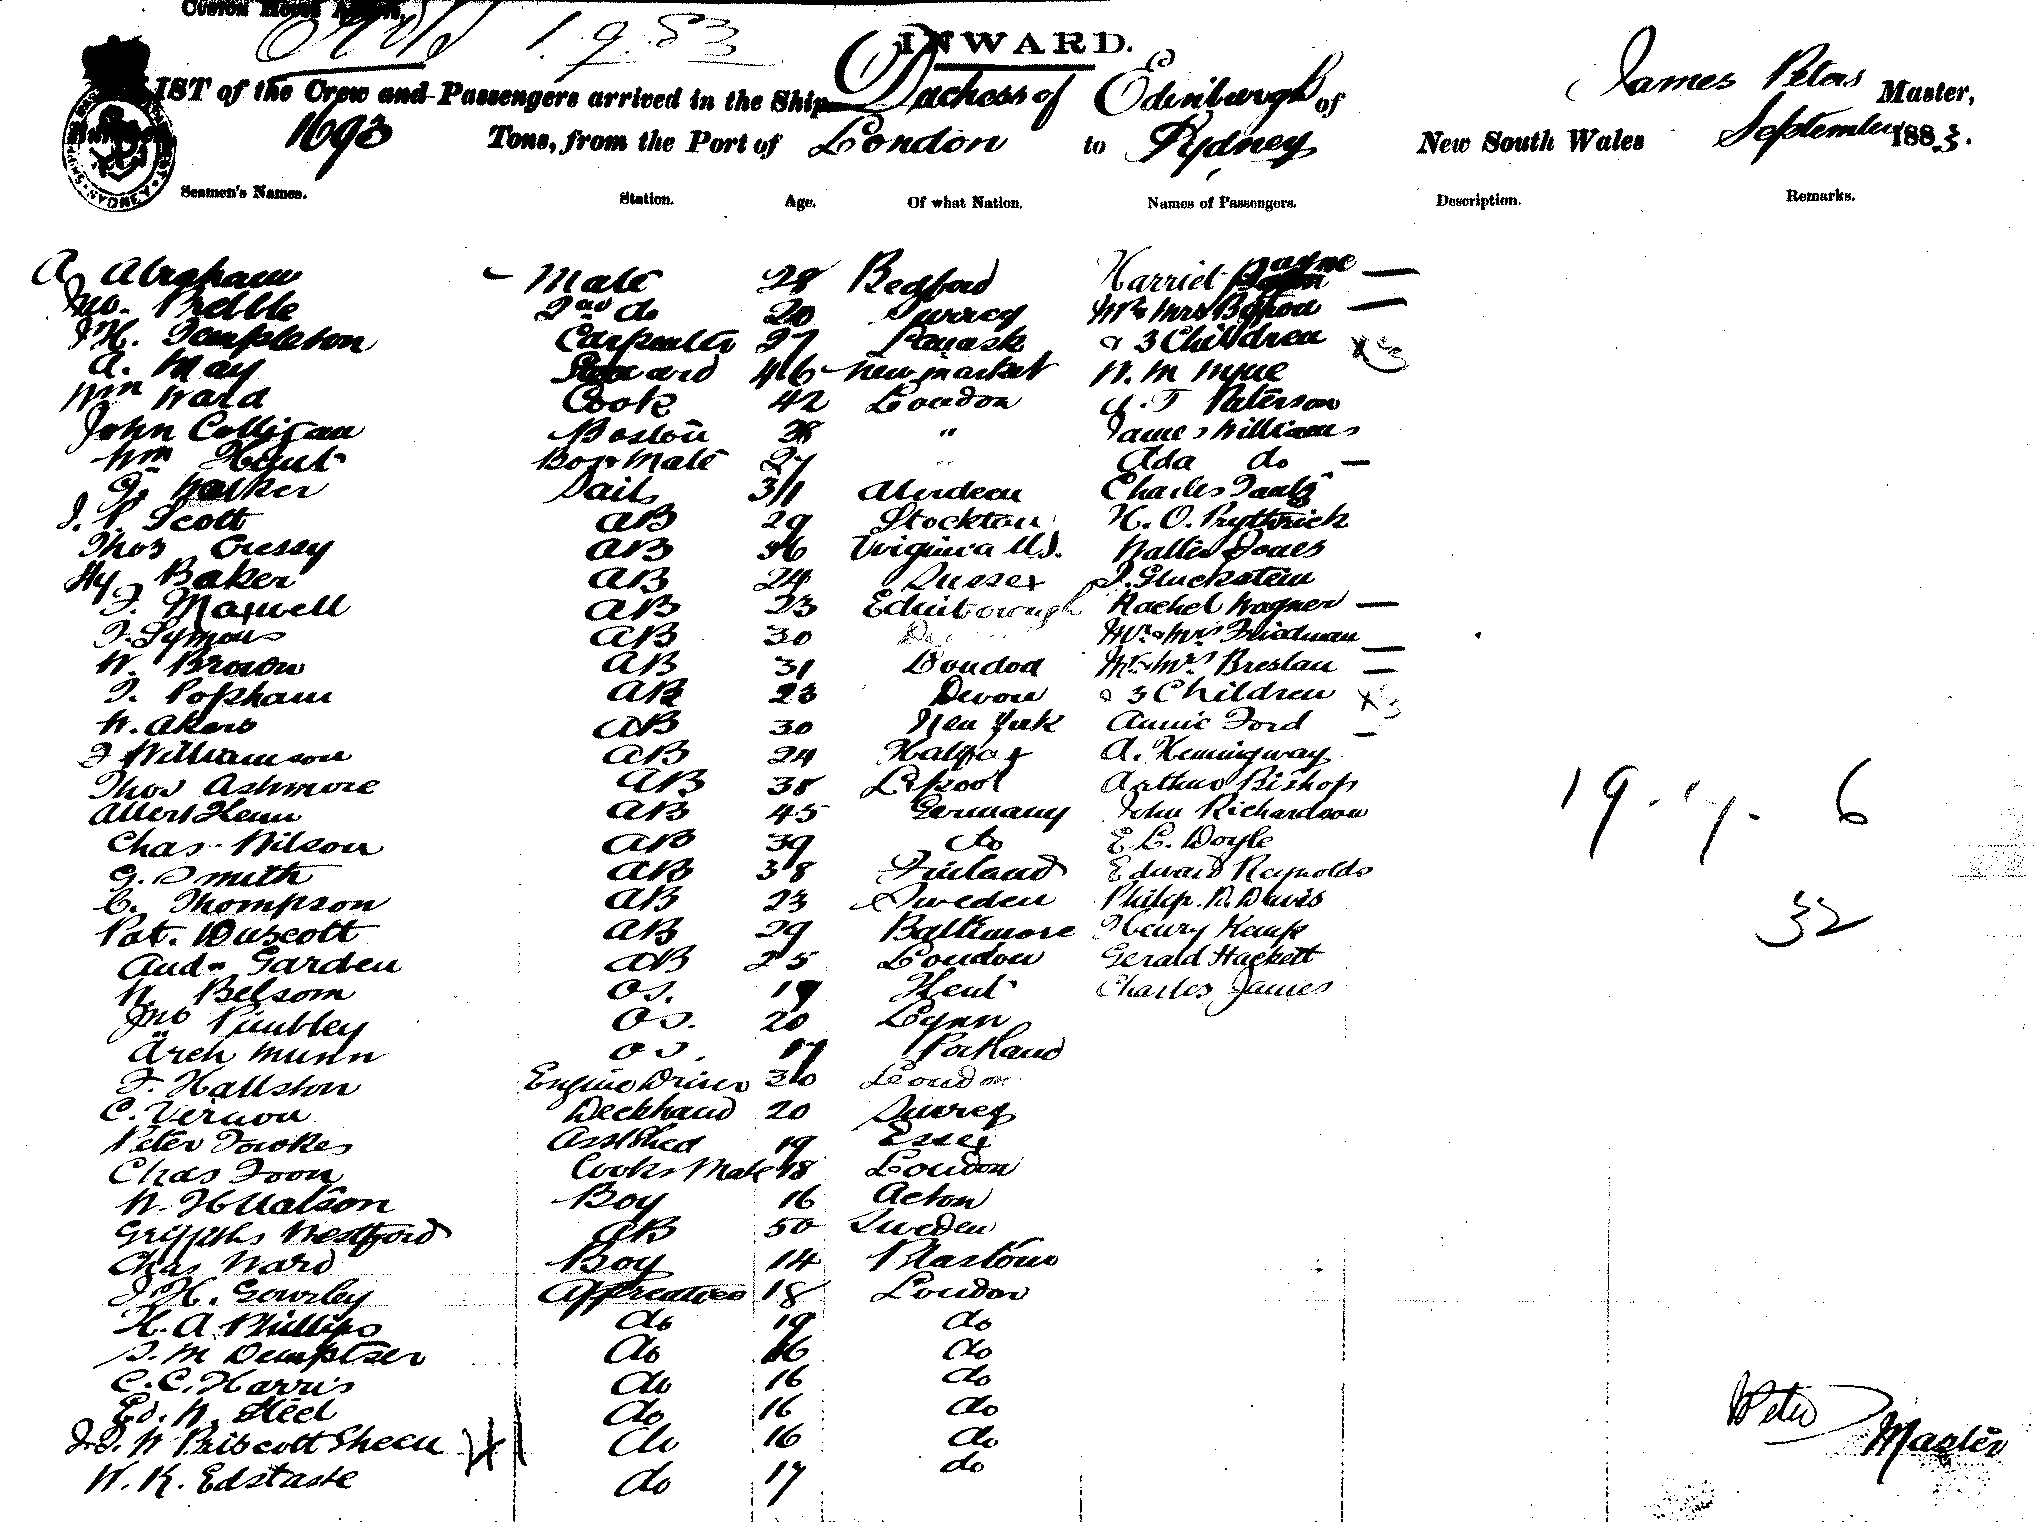 Custom House
1.9.83
INWARD.
LIST of the Crew and Passengers arrived in the Ship Duchess of Edinburgh of James Peters Master,
1693 Tons, from the Port of London to Sydney New South Wales September 1883.
Seamen's Names. Station. Age. Of what Nation. Names of Passengers. Description. Remarks.
A Abraham Mate 28 Bedford Harriet Payne
Jno. Prebble 2nd do 20 Surrey Mr & Mrs
J H. Templeton Carpenter 27 & 3 Children x 3
A. May Steward 46 New market W. M
Wm Ward Cook 42 London J. T Paterson
John Colligan Bostou 38 " James Williams
Wm Hunt Bos Mate 27 " Ada do
J. Walker Sails 31 Aberdeen Charles
J. P. Scott AB 29 Stockton H. O. Prytherick
Thos Cressy AB 36 Virginia U.S. Walter Jones
Hy Baker AB 24 Sussex J. Gluckstein
J. Maxwell AB 23 Edinborough Rachel Wagner
J. Symons AB 30 Mr & Mrs Friedman
W. Brown AB 31 London Mr & Mrs Breslau
J. Popham AB 23 Devon & 3 Children x 3
W. Akers AB 30 New York Annie Ford
J Williamson AB 24 Halifax A. Hemingway
Thos Ashmore AB 38 L'pool Arthur Bishop
Albert Henn AB 45 Germany John Richardson
Chas. Wilson AB 39 do E L. Doyle
G. Smith AB 38 Finland Edward Reynolds
C. Thompson AB 23 Sweden Philip. R. Davis
Pat. Duscott AB 29 Baltimore Henry Kemp
And. Garden AB 25 London Gerald Hackett
W. Belsom OS. 19 Kent Charles James
Jno Pimbley OS. 20 Lynn
Arch Munn OS. 17 Portland
F. Hallston Engine Driver London
C. Vernon Deckhand 20 Surrey
Peter Fowkes Asst Sted 19 Essex
Chas Foon Cooks Mate 18 London
W. H Watson Boy 16 Acton
Griffiths Westford AB 50 Sweden
Chas Ward Boy 14 Plastow
J. H. Gourley Apprentice 18 London
H. A Phillips do 19 do
J. M Demptser do 16 do
C. C. Harris do 16 do
Ed. W. Steel do 16 do
J. W Priscott Sheen do 16 do
W. K. Edstaste do 17 do
19. 17. 6
32
41
JPeters Master